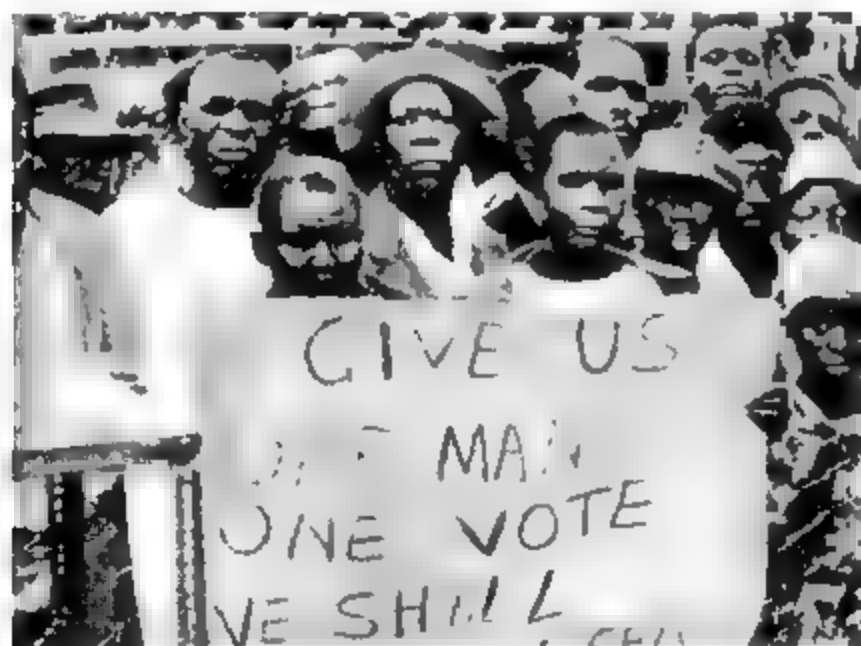 GIVE US
MAN
ONE VOTE
WE SHALL